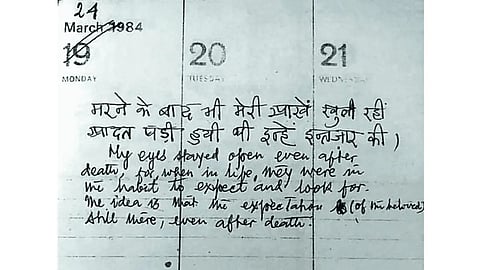 24
March 1984
19 20 21
MONDAY TUESDAY WEDNESDAY
मरने के बाद भी मेरी आखें खुली रहीं
आदत पड़ी हुयी थी इन्हें इन्तज़ार की )
My eyes stayed open even after
death, for when in life, they were in
the habit to expect and look for.
The idea is that the expectation is (of the beloved)
still there, even after death.